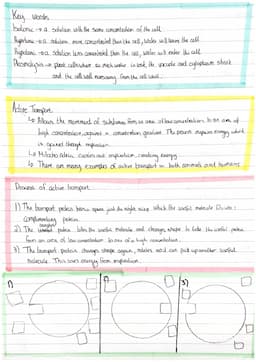 Key words
Isotonic → a solution with the same concentration of the cell.
Hypertonic → a solution more concentrated than the cell, water will leave the cell.
Hypotonic → a solution less concentrated than the cell, water will enter the cell.
Plasmolysis → plant cells where so much water is lost, the vacuole and cytoplasm shrink
and the cell wall moves away from the cell wall.
Active Transport
↳ Allows the movement of substances from an area of low concentration to an area of
high concentration, against a concentration gradient. The process requires energy which
is gained through respiration.
↳ Mitochondria carries out respiration, creating energy
↳ There are many examples of active transport in both animals and humans
Process of active transport
1) The transport protein has a space just the right size which the useful molecule fits into:
complementary protein
2) The transport protein takes the useful molecule and changes shape to take the useful protein
from an area of low concentration to one of a high concentration.
3) The transport protein changes shape again, rotates and can pick up another useful
molecule. This uses energy from respiration.
1)
2)
3)